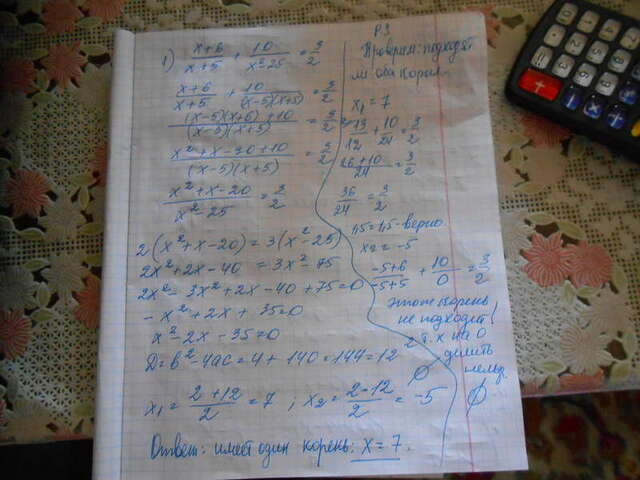 1) (x+6)/(x+5) + 10/(x²-25) = 3/2
(x+6)/(x+5) + 10/((x-5)(x+5)) = 3/2
((x-5)(x+6)+10)/((x-5)(x+5)) = 3/2
(x²+x-30+10)/((x-5)(x+5)) = 3/2
(x²+x-20)/(x²-25) = 3/2
2(x²+x-20) = 3(x²-25)
2x²+2x-40 = 3x²-75
2x²-3x²+2x-40+75=0
-x²+2x+35=0
x²-2x-35=0
D=b²-4ac=4+140=144=12
x₁=(2+12)/2=7; x₂=(2-12)/2=-5
Ответ: имеет один корень: x=7.
Проверим: подходят
ли оба корня.
x₁=7
13/12+10/24=3/2
(26+10)/24=3/2
36/24=3/2
1,5=1,5-верно
x₂=-5
(-5+6)/(-5+5)+10/0=3/2
Этот корень
не подходит!
т.к на 0
делить
нельз
∅ ∅